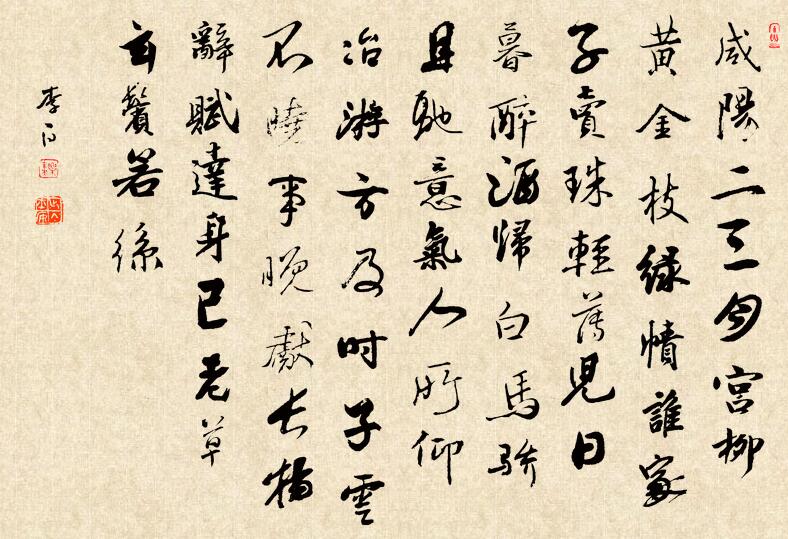 咸陽二三月宮柳
黃金枝綠幘誰家
子賣珠輕薄兒日
暮醉酒歸白馬驕
且馳意氣人所仰
冶游方及時子雲
不曉事晚獻長楊
辭賦達身已老草
玄鬢若絲
李白